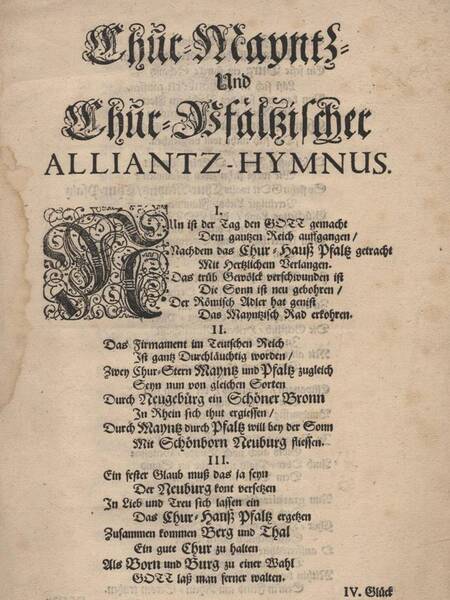 Chůr-Mayntz-
Und
Chůr-Pfältzischer
ALLIANTZ-HYMNUS.
I.
NUn ist der Tag den GOTT gemacht
Dem gantzen Reich auffgangen /
Nachdem das Chur-Hauß Pfaltz getracht
Mit Hertzlichem Verlangen.
Das trüb Gewölck verschwunden ist
Die Sonn ist neu gebohren /
Der Römisch Adler hat genist
Das Mayntzisch Rad erkohren.
II.
Das Firmament im Teutschen Reich
Ist gantz Durchläuchtig worden /
Zwey Chur-Stern Mayntz und Pfaltz zugleich
Seyn nun von gleichen Sorten
Durch Neugebürg ein Schöner Bronn
In Rhein sich thut ergiessen /
Durch Mayntz durch Pfaltz will bey der Sonn
Mit Schönborn Neuburg fliessen.
III.
Ein fester Glaub muß das ja seyn
Der Neuburg kont versetzen
In Lieb und Treu sich lassen ein
Das Chur-Hauß Pfaltz ergetzen
Zusammen kommen Berg und Thal
Ein gute Chur zu halten
Als Born und Burg zu einer Wahl
GOTT laß man ferner walten.
IV. Glück